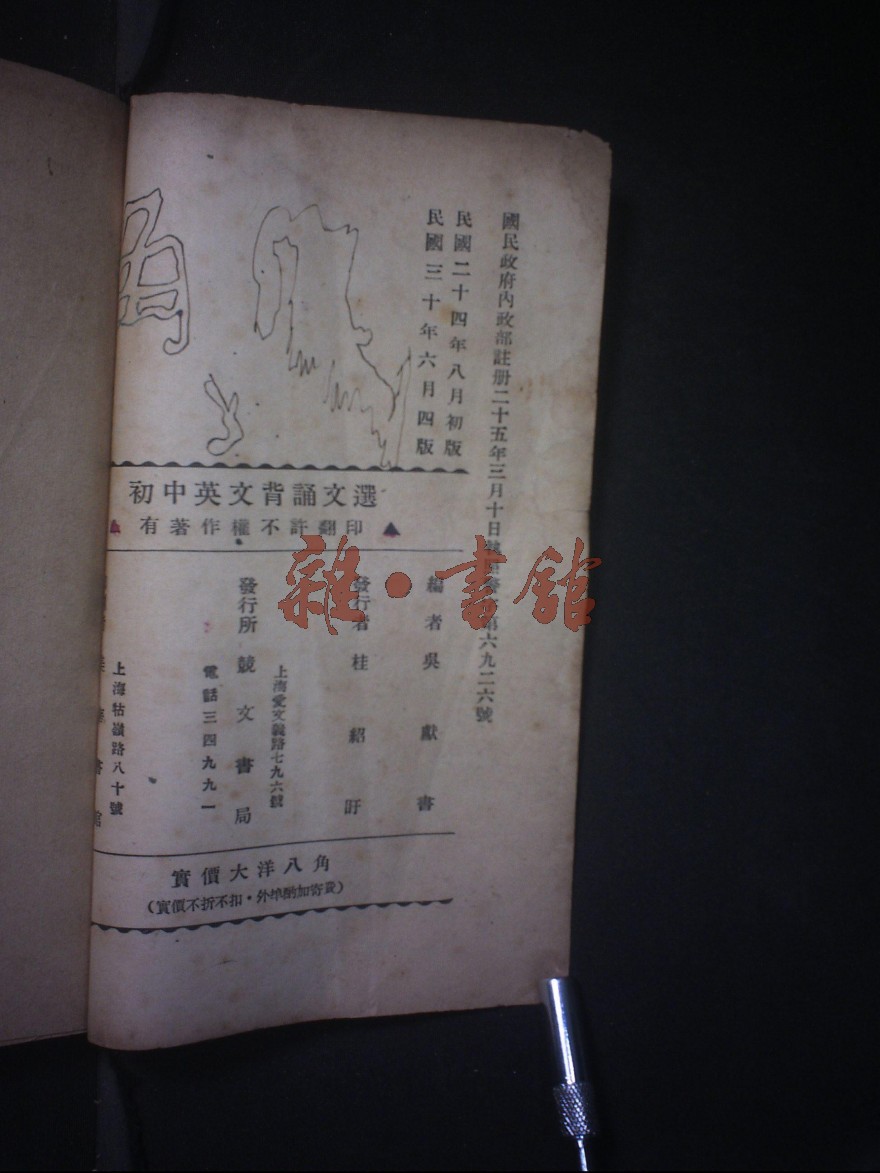 國民政府內政部註册二十五年三月十日 第六九二六號
民國二十四年八月初版
民國三十年六月四版
初中英文背誦文選
有著作權不許翻印
編者 吳獻書
發行者 桂紹盱
上海愛文義路七九六號
發行所 競文書局
電話三四九九一
上海牯嶺路八十號
書館
實價大洋八角
(實價不折不扣・外埠酌加寄費)
雜・書館